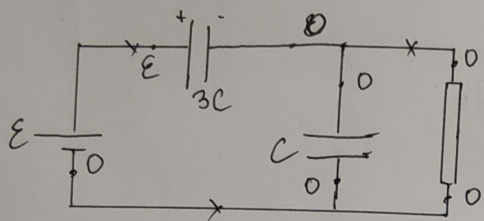 + -
0
ε
3C
0
0
ε
0
C
0
0